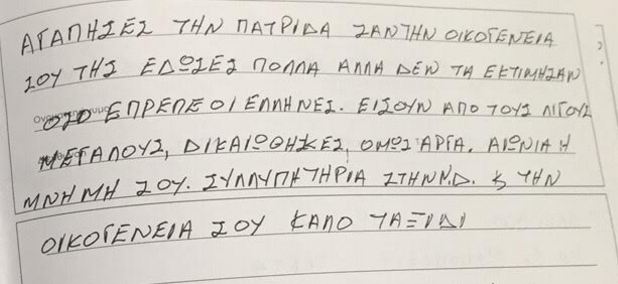 ΑΓΑΠΗΣΕΣ ΤΗΝ ΠΑΤΡΙΔΑ ΣΑΝ ΤΗΝ ΟΙΚΟΓΕΝΕΙΑ
ΣΟΥ ΤΗΣ ΕΔΩΣΕΣ ΠΟΛΛΑ ΑΛΛΑ ΔΕΝ ΤΑ ΕΚΤΙΜΗΣΑΝ
ΟΣΟ ΕΠΡΕΠΕ ΟΙ ΕΛΛΗΝΕΣ. ΕΙΣΟΥΝ ΑΠΟ ΤΟΥΣ ΛΙΓΟΥΣ
ΜΕΓΑΛΟΥΣ, ΔΙΚΑΙΩΘΗΚΕΣ, ΟΜΩΣ ΑΡΓΑ. ΑΙΩΝΙΑ Η
ΜΝΗΜΗ ΣΟΥ. ΣΥΛΛΥΠΗΤΗΡΙΑ ΣΤΗΝ Ν.Δ. & ΤΗΝ
ΟΙΚΟΓΕΝΕΙΑ ΣΟΥ ΚΑΛΟ ΤΑΞΙΔΙ